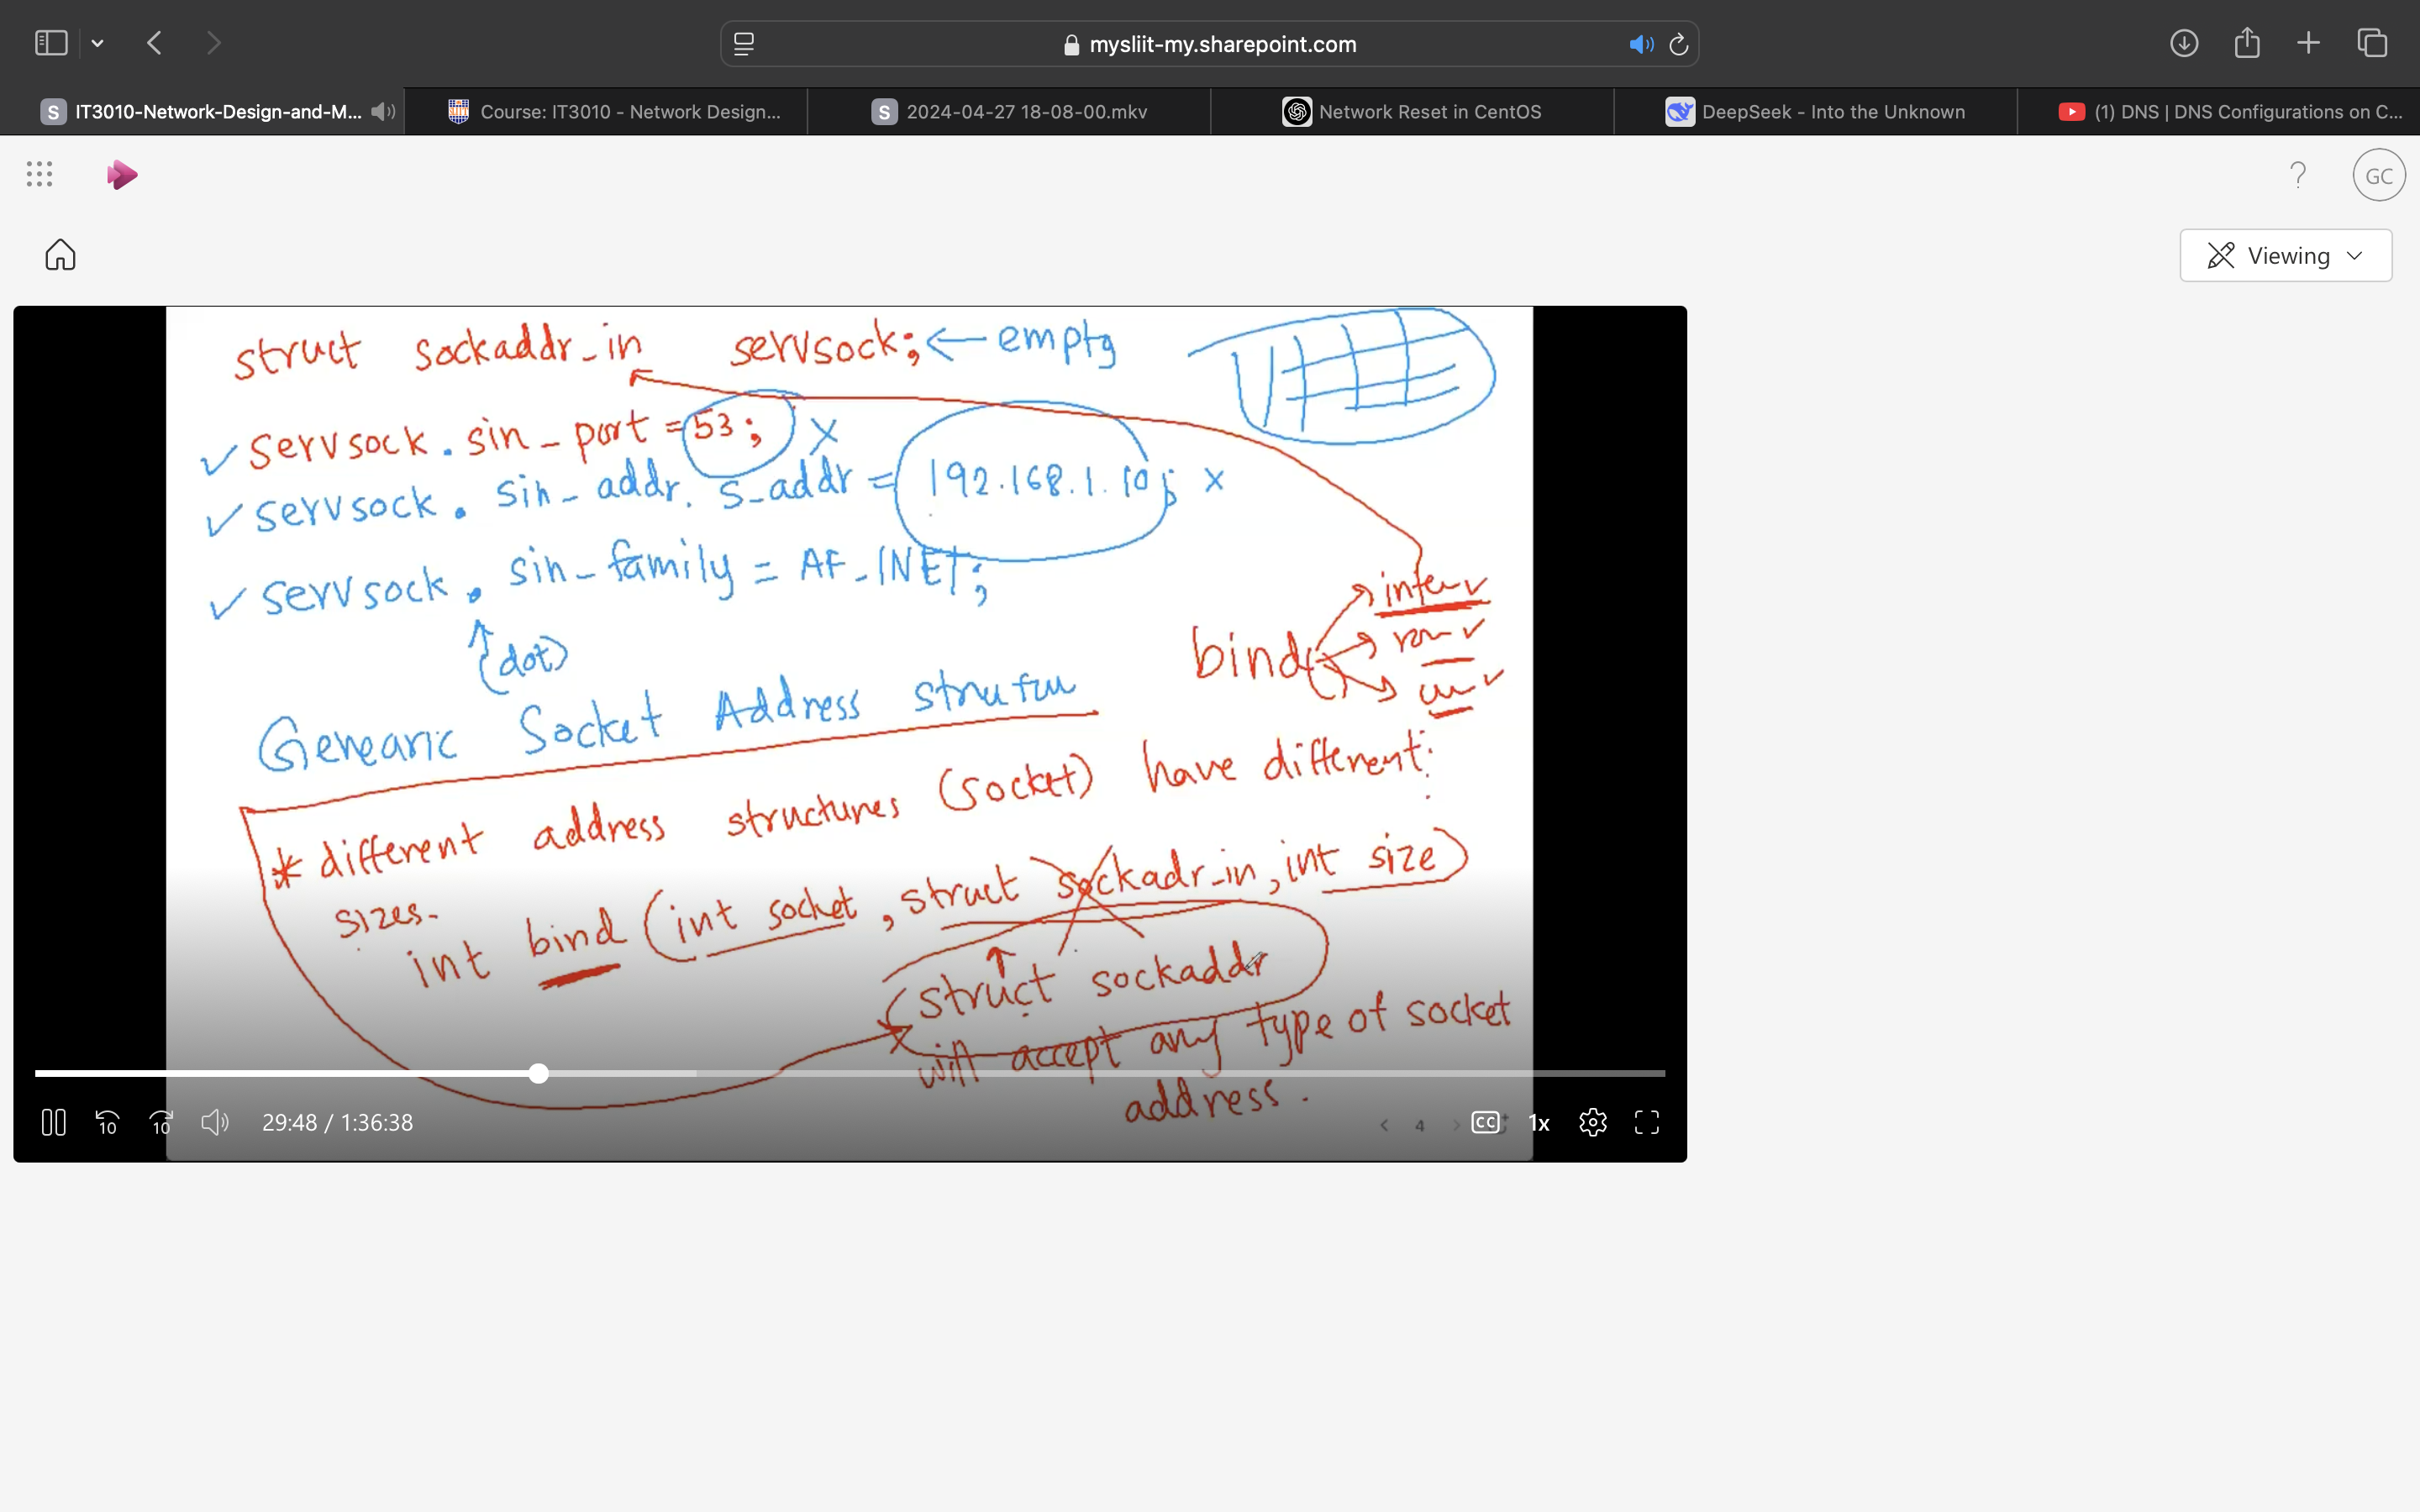 mysliit-my.sharepoint.com
S IT3010-Network-Design-and-M... Course: IT3010 - Network Design... S 2024-04-27 18-08-00.mkv Network Reset in CentOS DeepSeek - Into the Unknown (1) DNS | DNS Configurations on C...
? GC
Viewing
struct sockaddr_in servsock; ← empty
✓ servsock . sin _ port = 53 ; x
✓ servsock . sin _ addr. s_addr = 192.168.1.10; x
✓ servsock . sin _ family = AF _INET;
(dot)
bind()
✓
✓
✓
Genearic Socket Address
* different address structures (socket) have different:
sizes-
int bind (int socket , struct sockadr_in , int size)
(struct sockaddr
will accept any type of socket
address .
10 10 29:48 / 1:36:38 < 4 > CC 1x